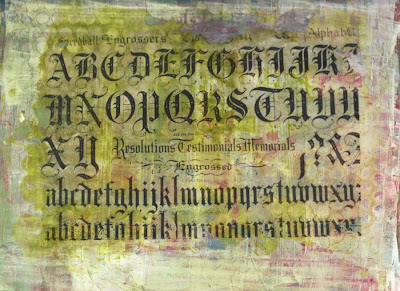 Speedball Engrossers Alphabet
ABCDEFGHIJK
MNOPQRSTUVW
XY &
Resolutions Testimonials Memorials
Engrossed
abcdefghijklmnopqrstuvwxyz
abcdefghijklm